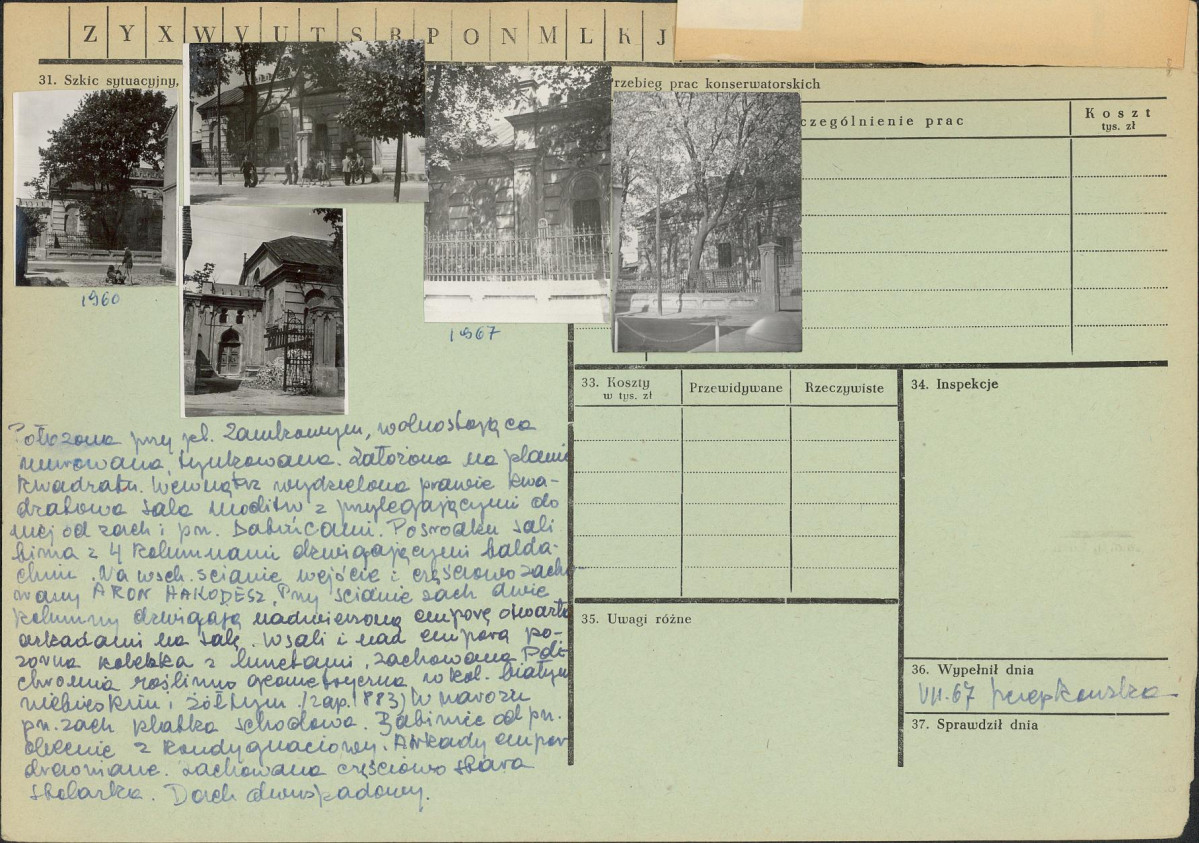 Z Y X W V U T S R P O N M L K J
31. Szkic sytuacyjny,
rzebieg prac konserwatorskich
czególnienie prac
Koszt
tys. zł
1960
1967
33. Koszty
w tys. zł
Przewidywane
Rzeczywiste
34. Inspekcje
35. Uwagi różne
36. Wypełnił dnia
VII.67
37. Sprawdził dnia
Położona przy pl. Zamkowym, wolnostojąca
murowana, tynkowana. Założona na planie
kwadratu. Wewnątrz wydzielona prawie kwa-
dratowa sala modlitw z przylegającymi do
niej od zach i pn. babińcami. Pośrodku sali
bima z 4 kolumnami dzwigającymi balda-
chim. Na wsch. ścianie wejście i częściowo zach
wany ARON HAKODESZ. Przy ścianie zach dwie
kolumny dzwigają nadwieszoną emporę otwartą
arkadami na salę. W sali i nad emporą po-
zorna kolebka z lunetami, zachowana poli
chromia roślinno geometryczna w kol. białym
niebieskim i żółtym /zap. 1883/ W narożu
pn. zach klatka schodowa. Babiniec od pn.
obecnie 2 kondygnaciowy. Arkady empor
drewniane. Zachowana częściowo stara
stolarka. Dach dwuspadowy.